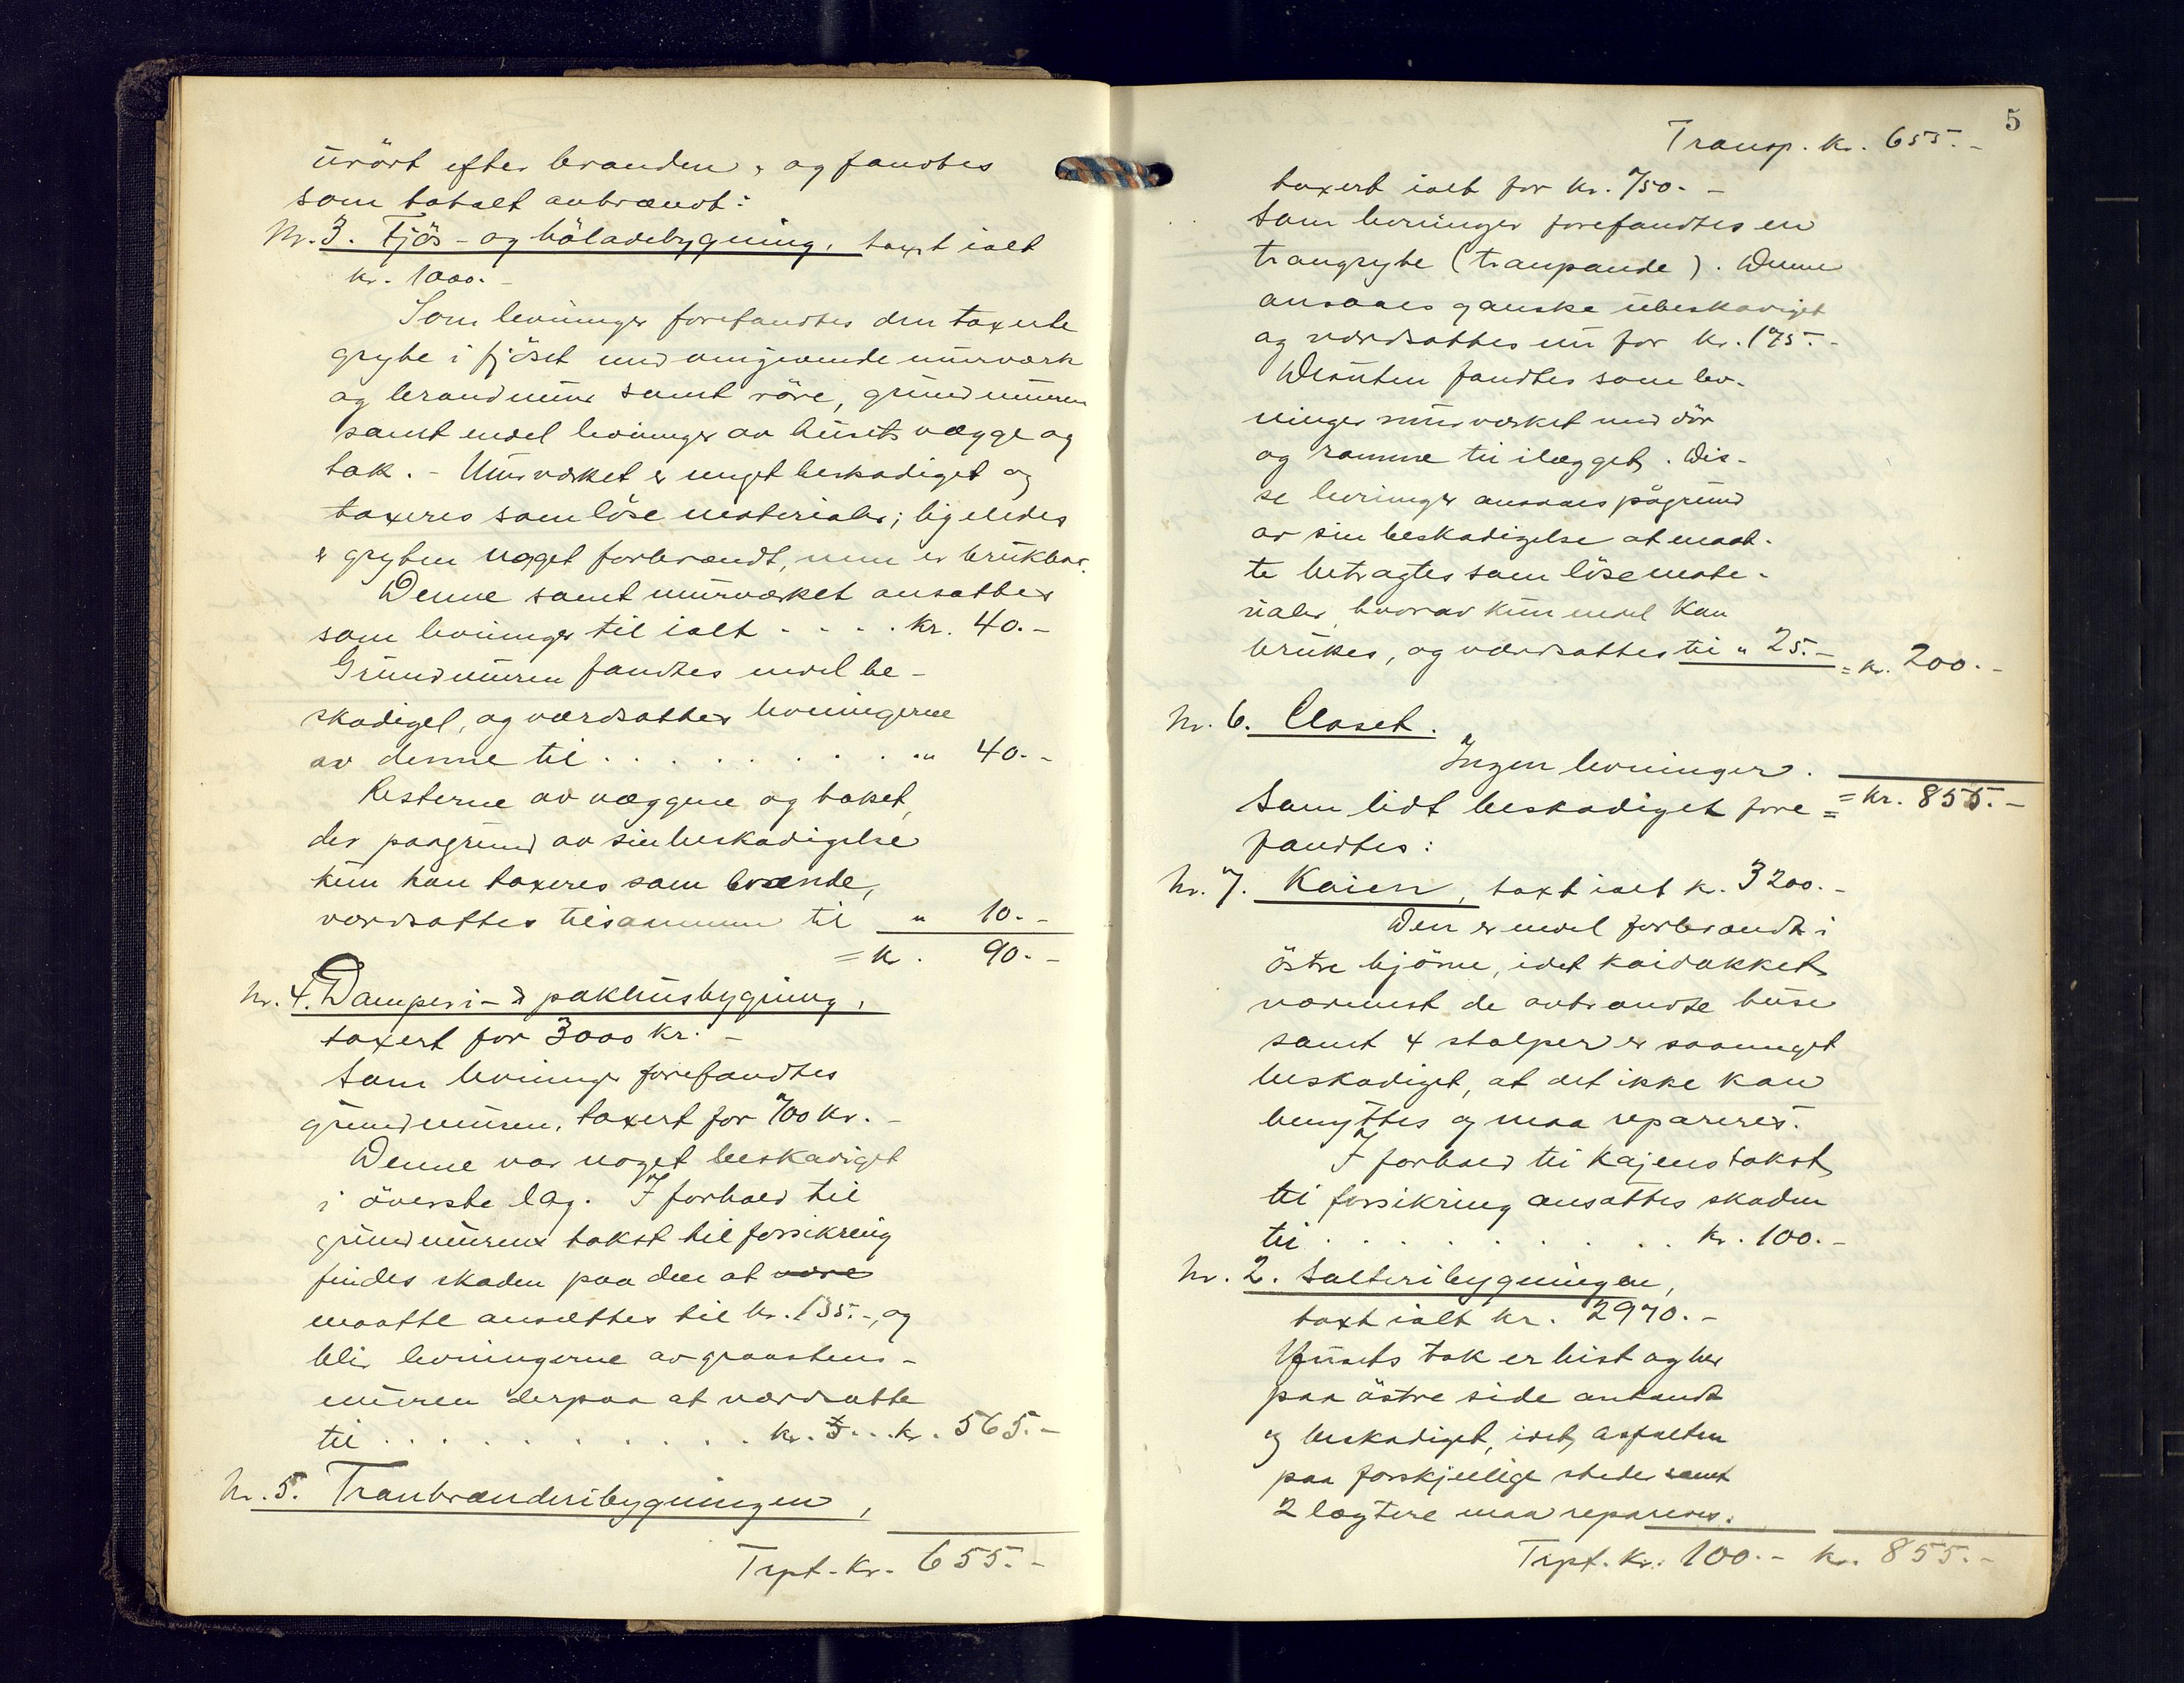 urört efter branden, og fandtes
som totalt avbrændt:
Nr. 3. Fjös- og höladebygning, taxt ialt
kr. 1000.-
Som levninger forefandtes den taxerte
gryte i fjöset med omgivende murværk
og brandmur samt röre, grundmuren
samt endel levninger av husets vægge og
tak. - Murværket er meget beskadiget og
taxeres som löse materialer; ligeledes
er gryten noget forbrændt, men er brukbar.
Denne samt murværket ansattes
som levninger til ialt - - - - kr. 40.-
Grundmuren fandtes endel be-
skadiget, og værdsattes levningerne
av denne til . . . . . . . . " 40.-
Resterne av væggene og taket,
der paagrund av sin beskadigelse
kun kan taxeres som brænde,
værdsattes tilsammen til " 10.-
= kr. 90.-
Nr. 4. Damperi- & pakhusbygning,
taxert for 3000 kr. -
Som levninger forefandtes
grundmuren, taxert for 700 kr. -
Denne var noget beskadiget
i överste lag. I forhold til
grundmurens takst til forsikring
findes skaden paa den at være
maatte ansættes til kr. 135.-, og
blir levningerne av graastens-
muren derpaa at værdsatte
til . . . . . . . . . kr. 5 . . . kr. 565.-
Nr. 5. Tranbrænderibygningen,
Trpt. kr. 655.-
5
Transp. kr. 655.-
taxert ialt for kr. 750.-
Som levninger forefandtes en
trangryte (tranpande). Denne
ansaaes ganske ubeskadiget
og værdsattes nu for kr. 175.-
Desuten fandtes som lev-
ninger murværket med dör
og ramme til ilægget. Dis-
se levninger ansaaes pågrund
av sin beskadigelse at maat-
te betragtes som löse mate-
rialer, hvorav kun endel kan
brukes, og værdsattes til " 25.- = kr. 200.-
Nr. 6. Closet.
Ingen levninger.
= kr. 855.-
Som lidt beskadiget fore=
fandtes:
Nr. 7. Kaien, taxt ialt kr. 3200.-
Den er endel forbrandt i
östre hjörne, idet kaidækket
nærmest de avbrandte huse
samt 4 stolper er saameget
beskadiget, at det ikke kan
benyttes og maa repareres.
I forhold til kajens takst
til forsikring ansattes skaden
til . . . . . . . . . kr. 100.-
Nr. 2. Salteribygningen,
taxt ialt kr. 2970.-
Husets tak er hist og her
paa östre side antændt
og beskadiget, idet asfalten
paa forskjellige steder samt
2 lægtere maa repareres.
Trpt. kr. 100.- kr. 855.-